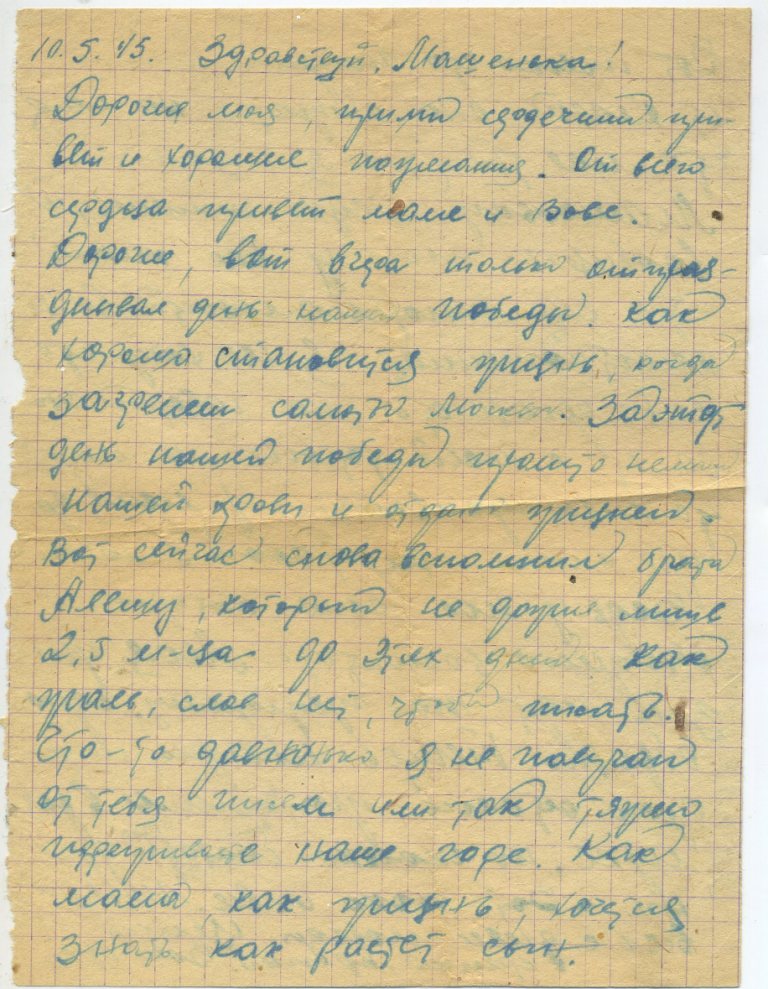 10.5.45. Здравствуй, Машенька!
Дорогие моя, прими сердечный при-
вет и хорошие пожелания. От всего
сердца привет маме и Вове.
Дорогие, вот вчера только отпраз-
дновал день нашей победы. Как
хорошо становится жизнь, когда
салют Москвы. За этот
день нашей победы пролито немало
нашей крови и отдано жизней.
Вот сейчас снова вспомнил брата
Алешу, который не дожил лишь
2,5 м-ца до этих дней. Как
жаль, слов нет, чтобы писать.
Что-то давненько я не получал
от тебя писем или так тяжело
переживаете наше горе. Как
мама, как жизнь, хочется
знать как растет сын.